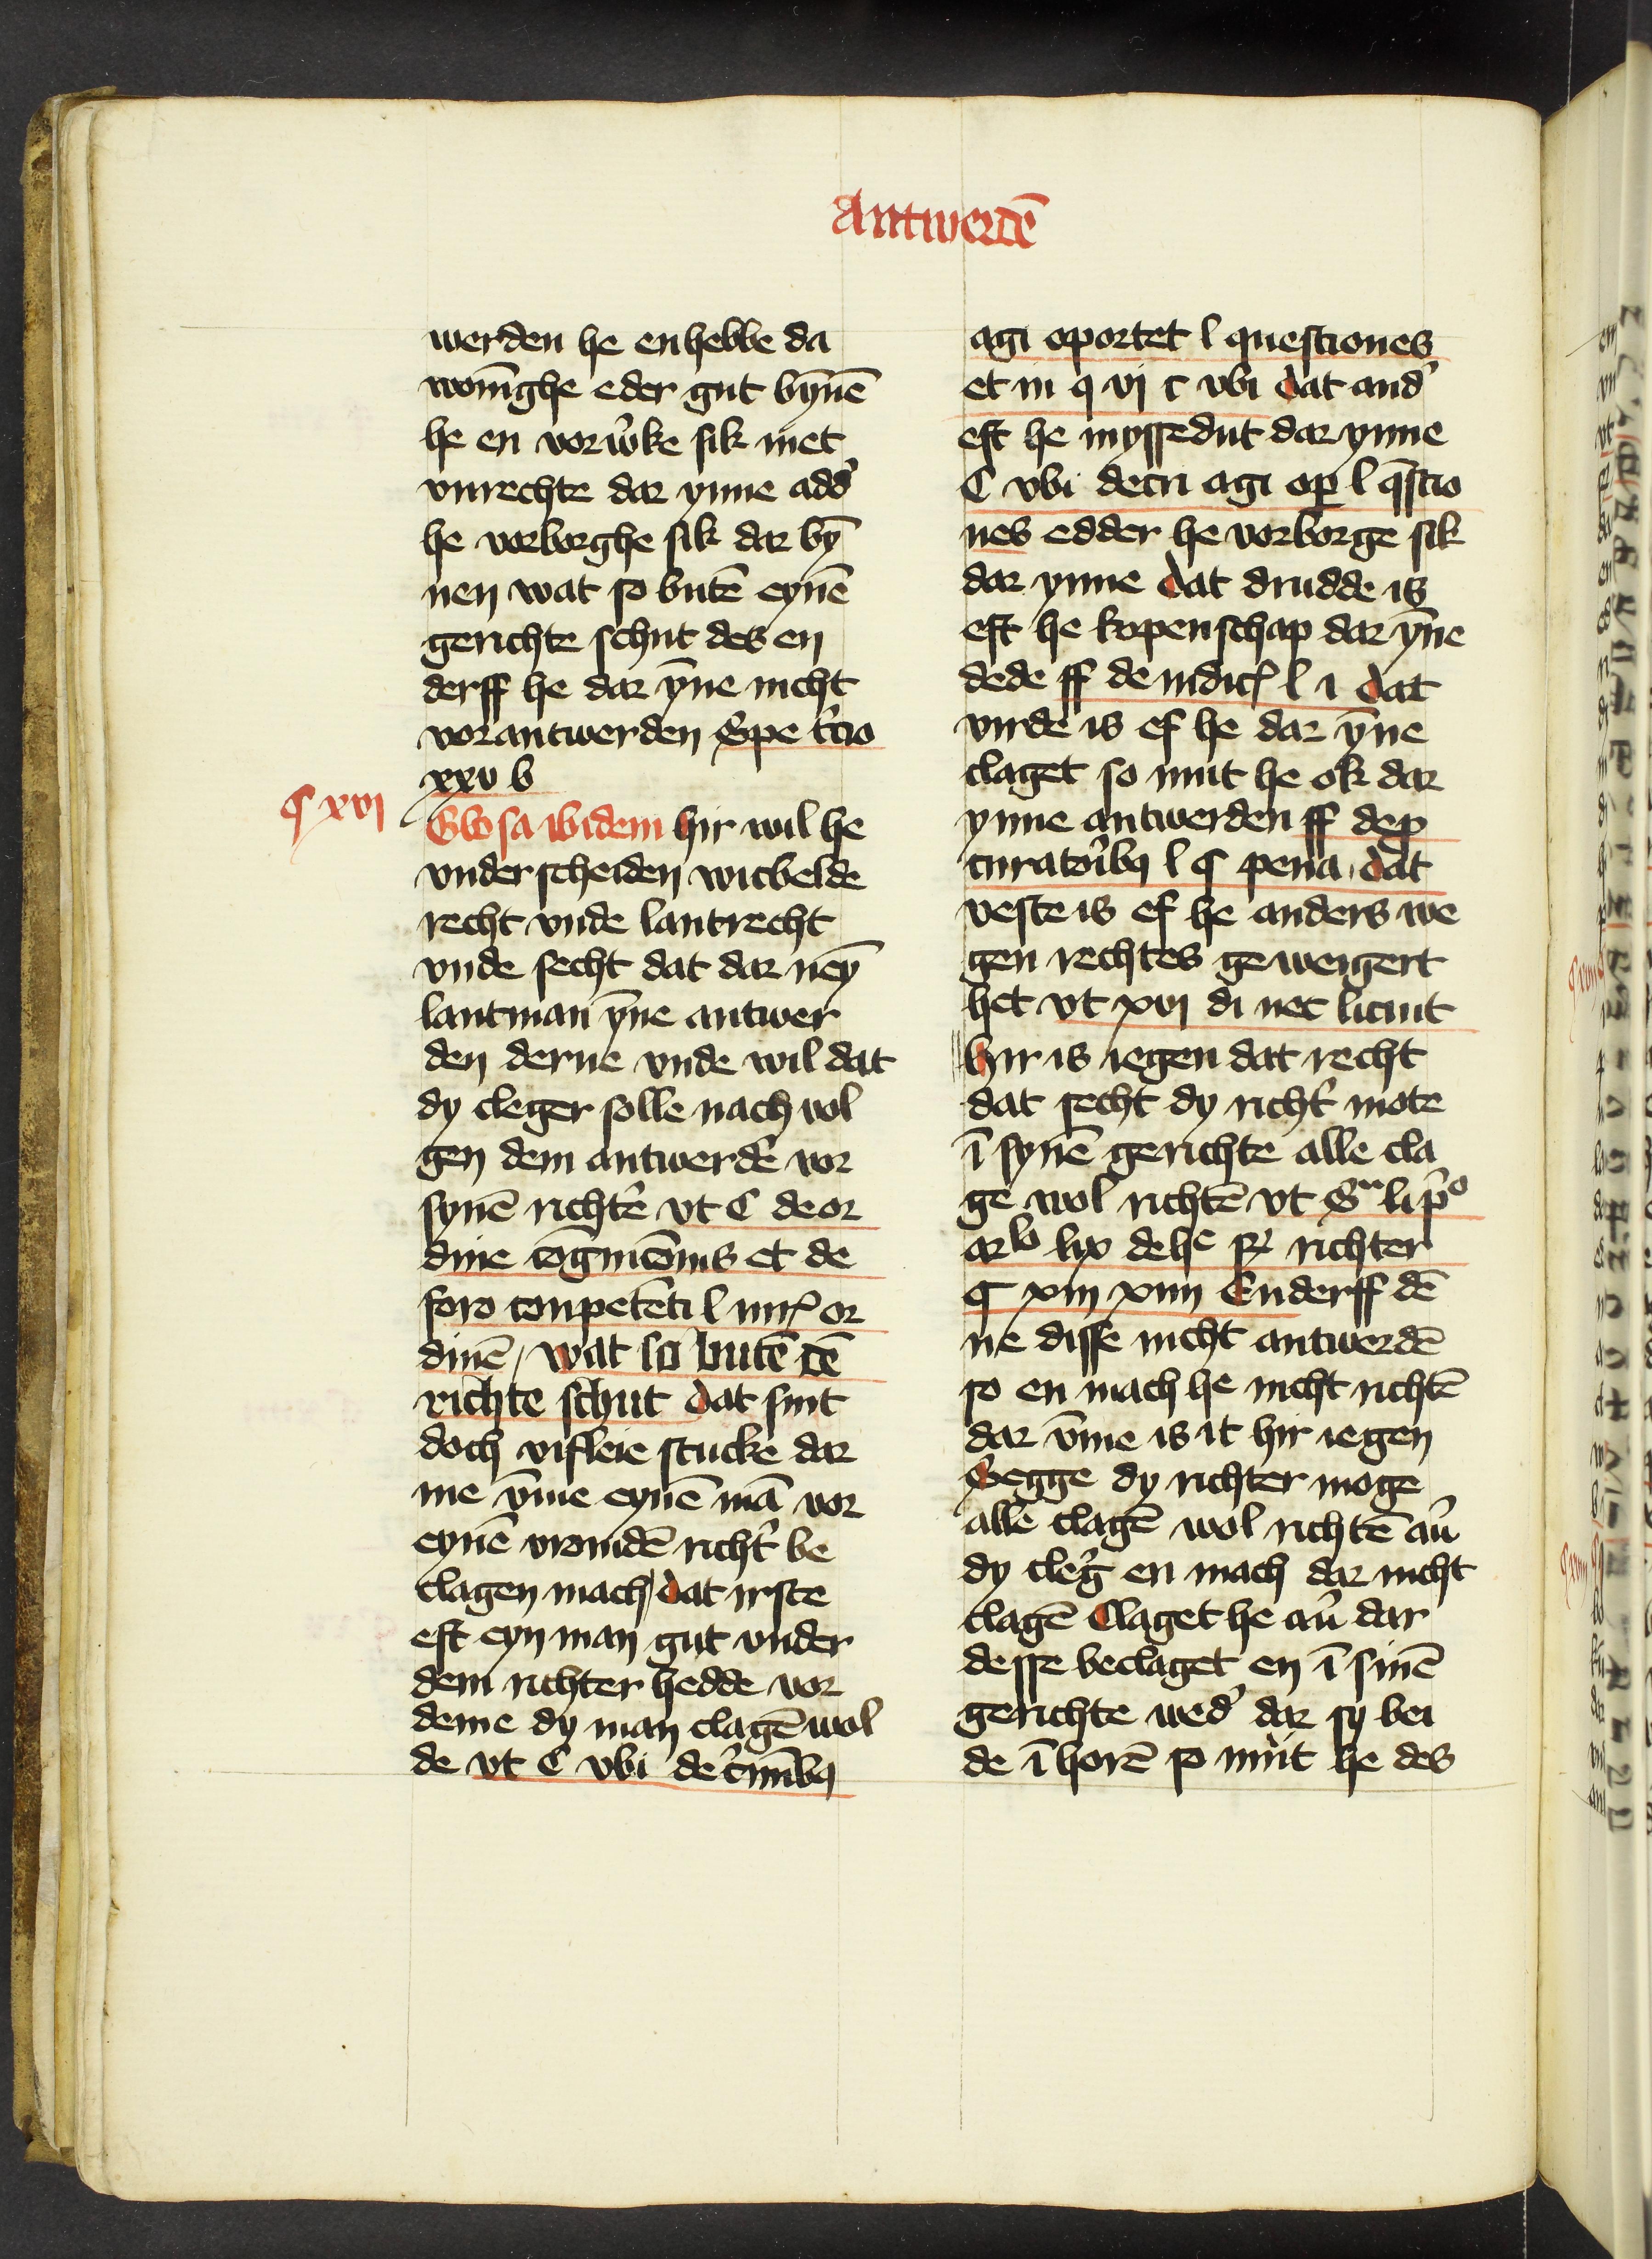 Antwerdē
werden he enhebbe da
woni̅ghe eder gut by̅nē
he en vorẘke sik met
vnrechte dar ynne add᷎
he vorborghe sik dar by̅
nen wat so butē eynē
gerichte schut des en
derff he dar y̅ne nicht
vorantwerden Spe t᷎cio
xxv b
¶ xvi
Glosa ibidem hir wil he
vnderscheiden wicbelde
recht vnde lantrecht
vnde secht dat dar ney̅
lantman y̅ne antwer
den derne vnde wil dat
dy cleger solle nach vol
gen dem antwerdē vor
synē richt᷎e vt C de or
dine cōgnicōnis et de
foro conpetēti l iurꝭ or
dinē / wat so butē dē
richte schut dat sint
doch vifleie stucke dar
me v̅me eynē mā vor
eynē vromdē richt᷎ be
clagen mach / dat irste
eft eyn man gut vnder
dem richter hedde vor
deme dy man clagē wol
de vt C vbi de c᷎minibꝫ
agi oportet l questiones
et iii q vi c vbi dat and᷎
eft he myssedut dar ynne
C vbi decri agi op̲ l q̅stio
nes edder he vorborge sik
dar ynne dat drudde is
eft he kopenschap dar y̅ne
dede ff de iudicꝭ l i dat
virde is ef he dar y̅ne
claget so mut he ok dar
ynne antwerden ff de p̲
curatorībꝫ l ¶ pena . dat
veste is ef he anders we
gen rechtes geweigert
het vt xvi di nec licuit
Hir is iegen dat recht
dat secht dy richt᷎ mote
ī synē gerichte alle cla
ge wol richtē vt Sᵘ li p᷎ᵒ
ar lix
richter
¶ xiii xiiii Enderff dē
ne disse nicht antwerdē
so en mach he nicht richtē
dar v̅me is it hir iegen
Segge dy richter moge
alle clagē wol richtē au᷎
dy cleg᷎ en mach dar nicht
clagē Claget he au᷎ dar
desse beclaget en ī sinē
gerichte wed᷎ dar sy bei
de ī horē p mut he des